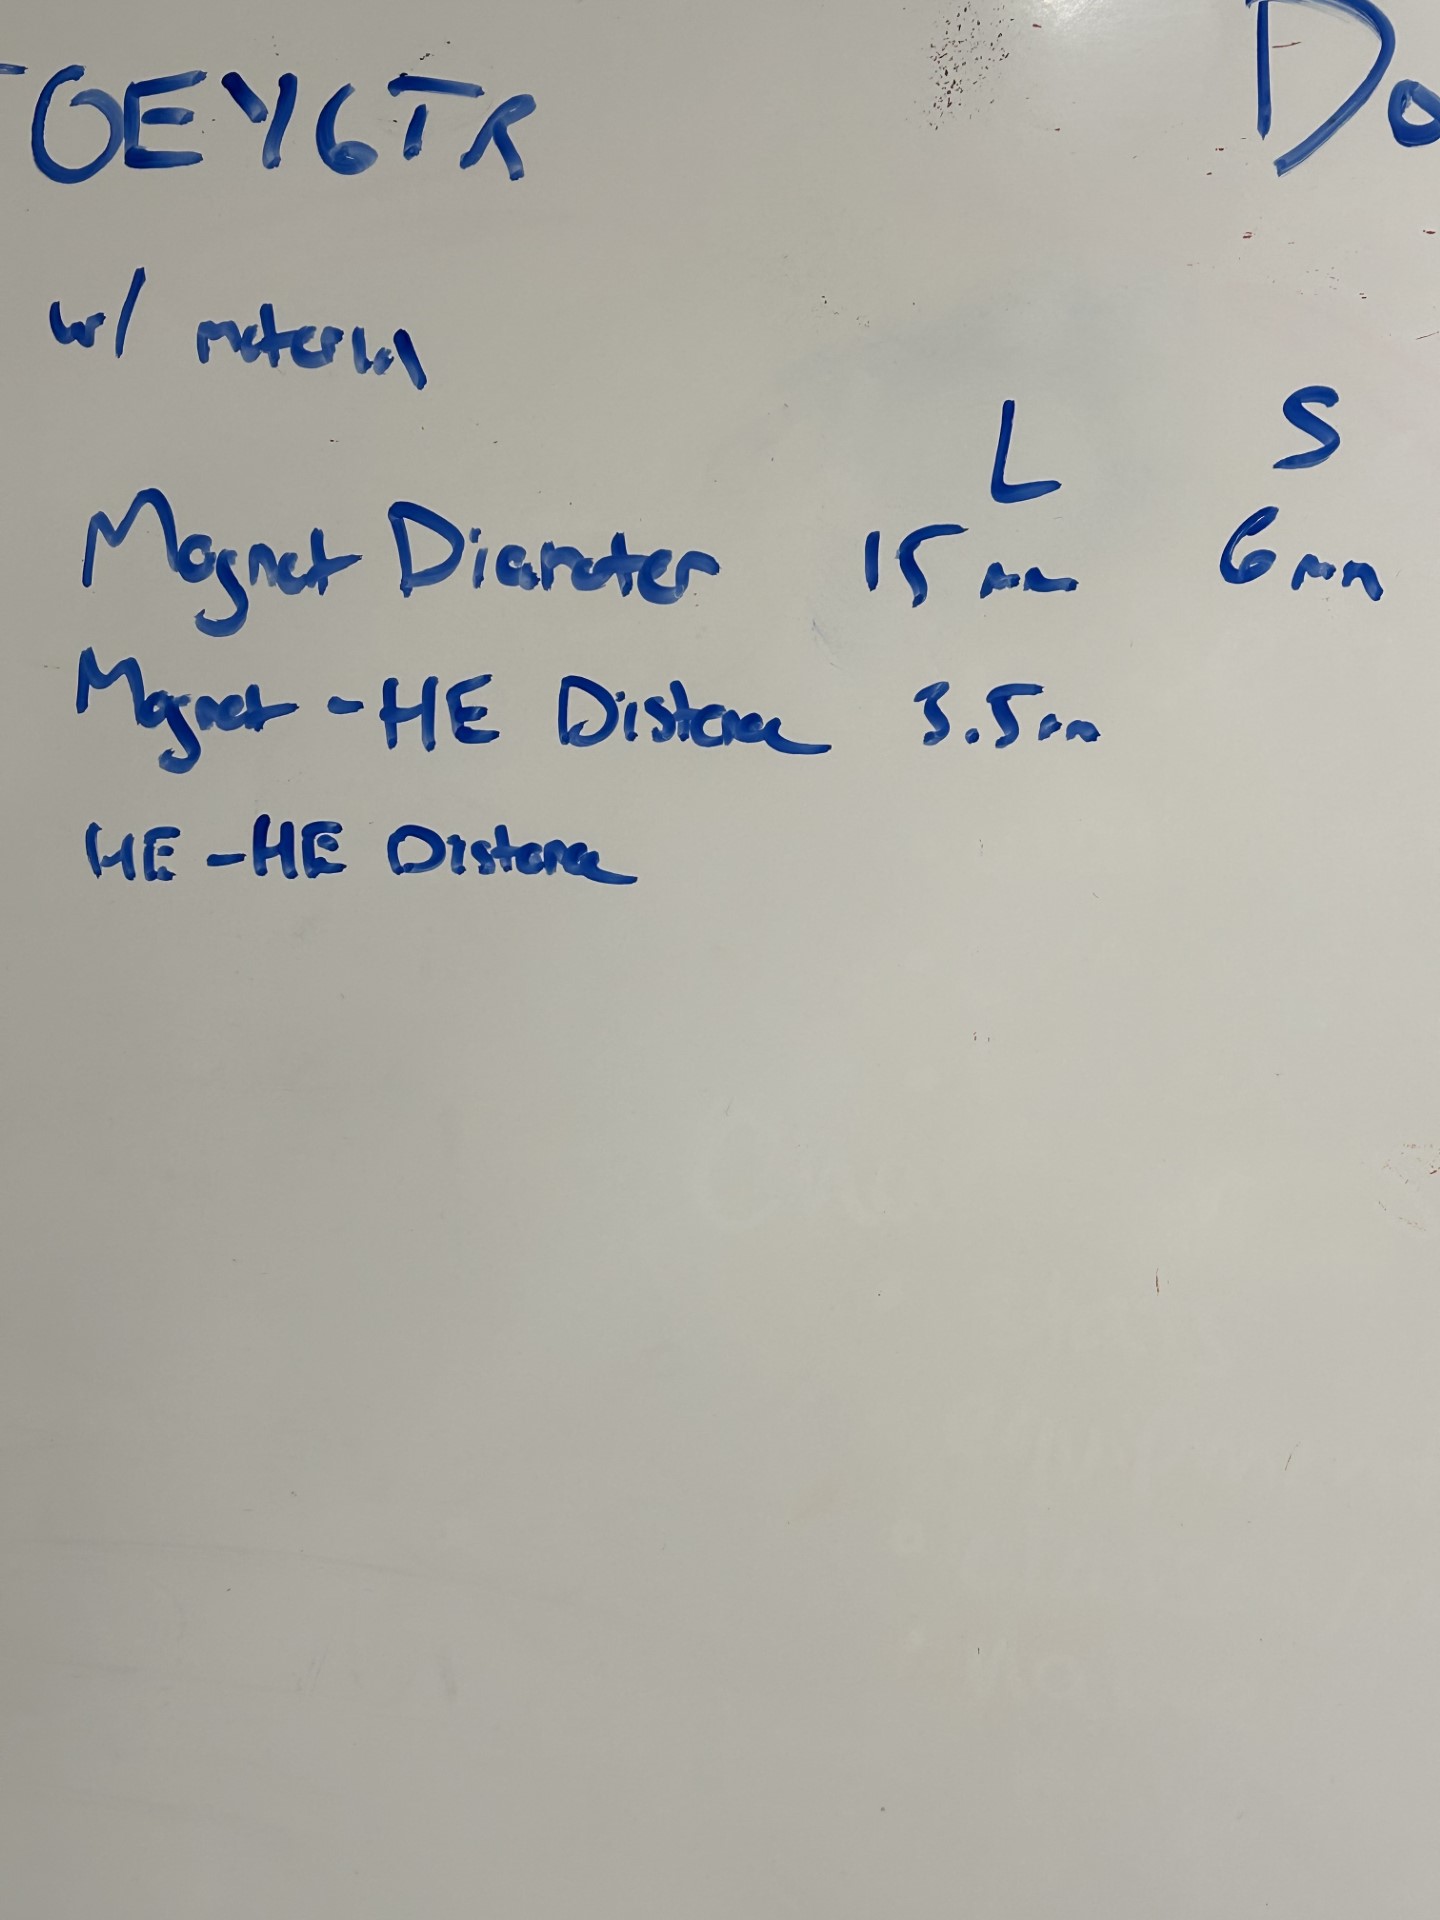 OEY6TR Do
w/ material
L S
Magnet Diameter 15 mm 6mm
Magnet - HE Distance 3.5mm
HE - HE Distance